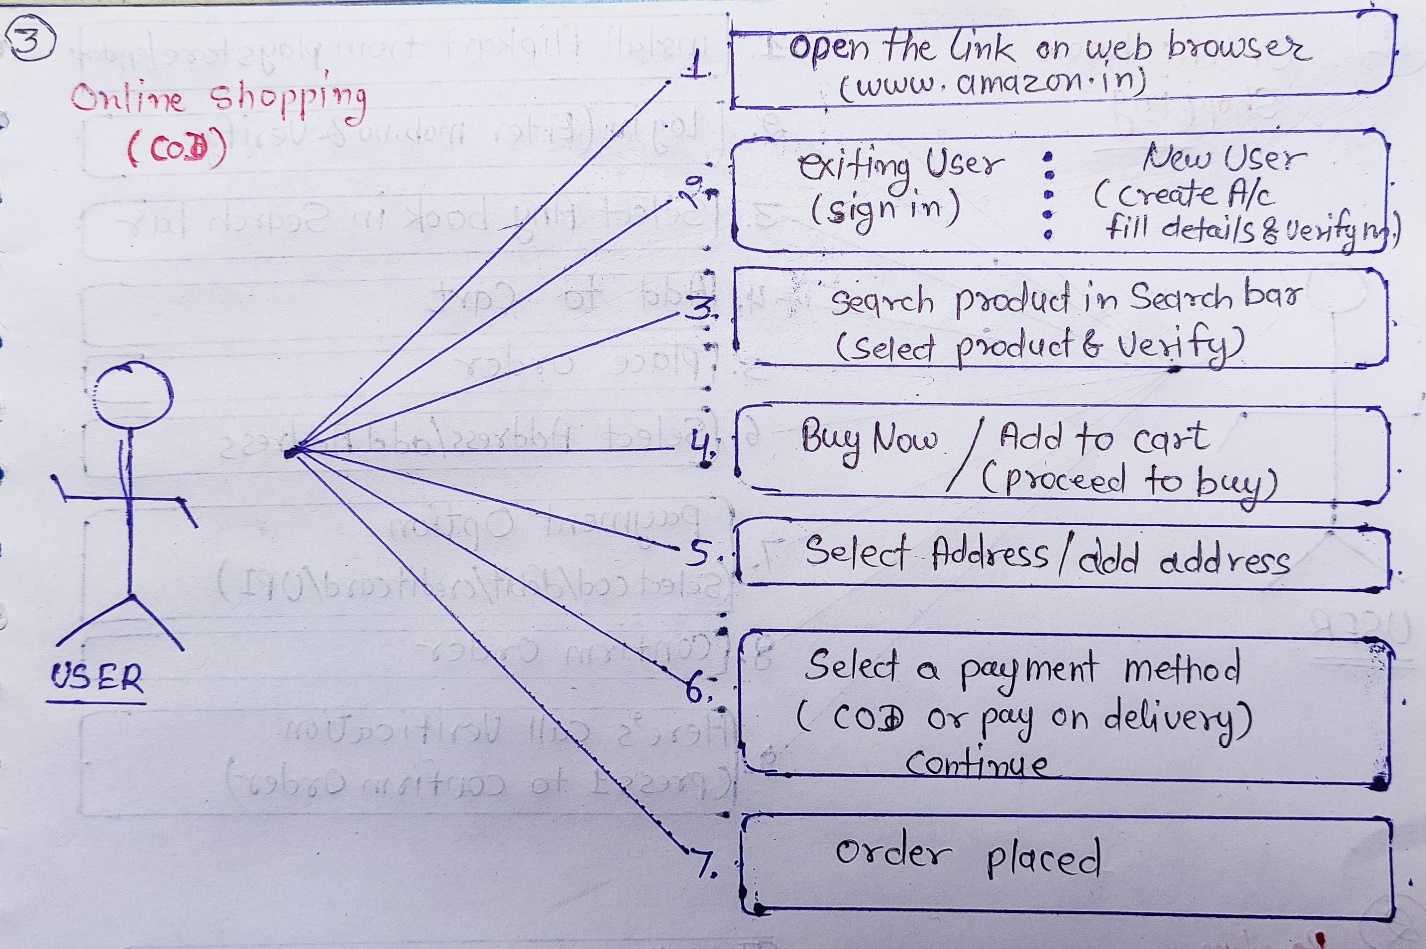 3
Online Shopping
(COD)
1. open the link on web browser
(www.amazon.in)
2. exiting User
(sign in)
New User
(Create A/c
fill details & verify no.)
3. Search product in Search bar
(Select product & Verify)
4. Buy Now / Add to cart
(proceed to buy)
5. Select Address / add address
6. Select a payment method
(COD or pay on delivery)
Continue
7. Order placed
USER